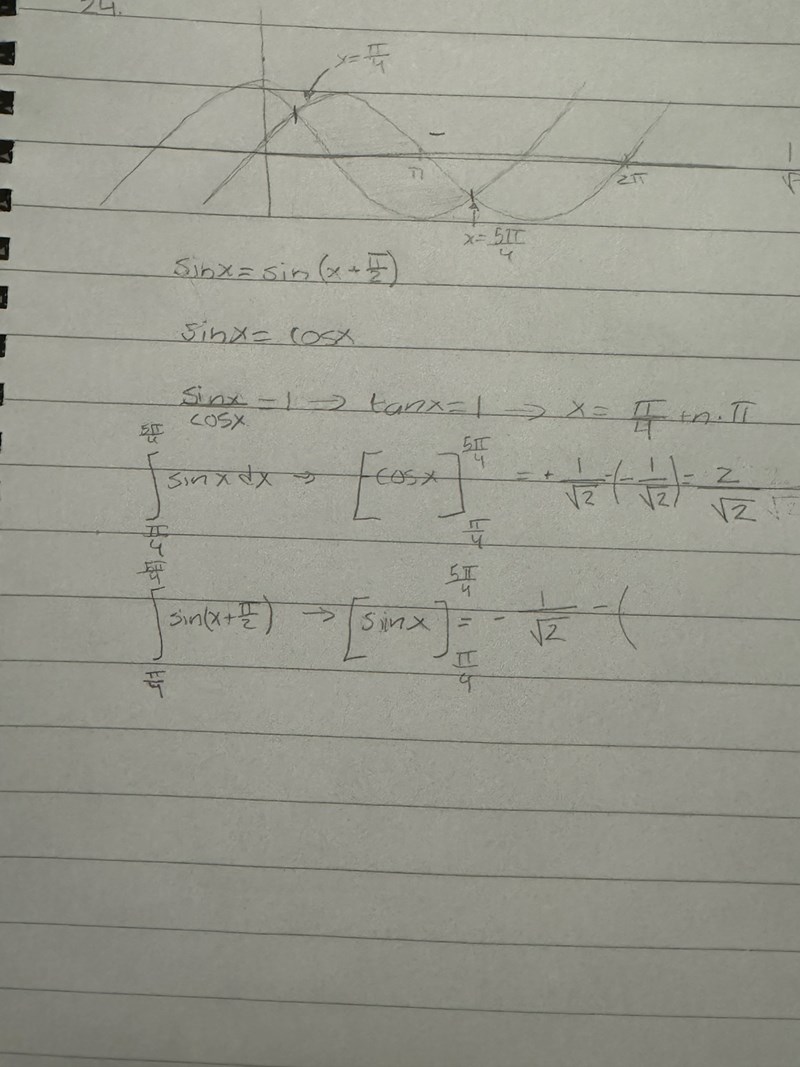 24.
x = π/4
π
2π
1/√
x = 5π/4
sinx = sin(x + π/2)
sinx = cosx
sinx/cosx = 1 → tanx = 1 → x = π/4 + n·π
∫_{π/4}^{5π/4} sinx dx → [-cosx]_{π/4}^{5π/4} = + 1/√2 - (- 1/√2) = 2/√2
∫_{π/4}^{5π/4} sin(x + π/2) → [sinx]_{π/4}^{5π/4} = - 1/√2 - (